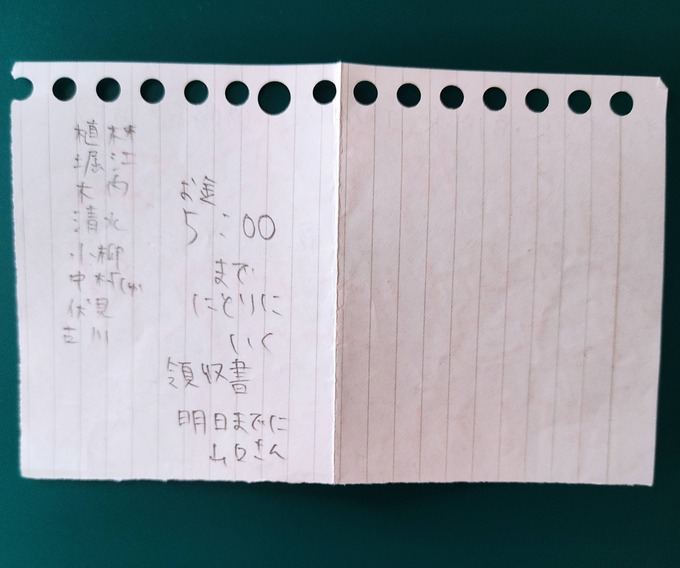 植林
堀江
木内
清水
小柳
中村
伏見
古川
5:00
まで
にとりに
いく
領収書
明日までに
山口さん